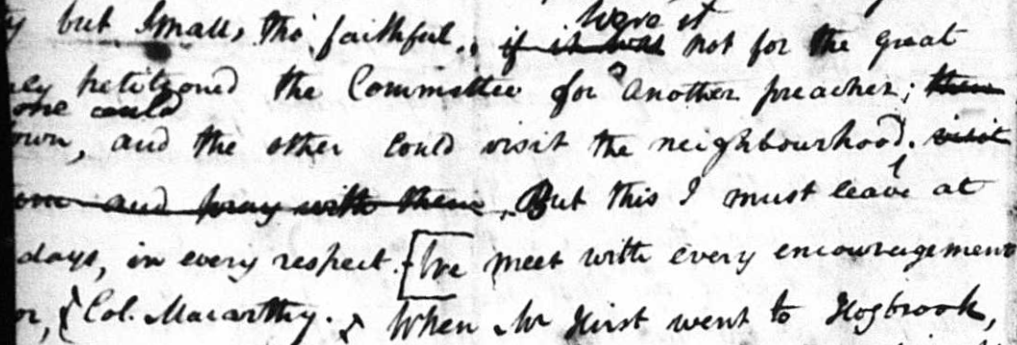 but small, tho' faithful. were it
if it was not for the great
petitioned the Committee for another preacher; then
one could
own, and the other could visit the neighbourhood. visit
and pray with them. But this I must leave at
days, in every respect. [We meet with every encouragement
or, Col. Macarthy. When Mr Hirst went to Hogbrook,